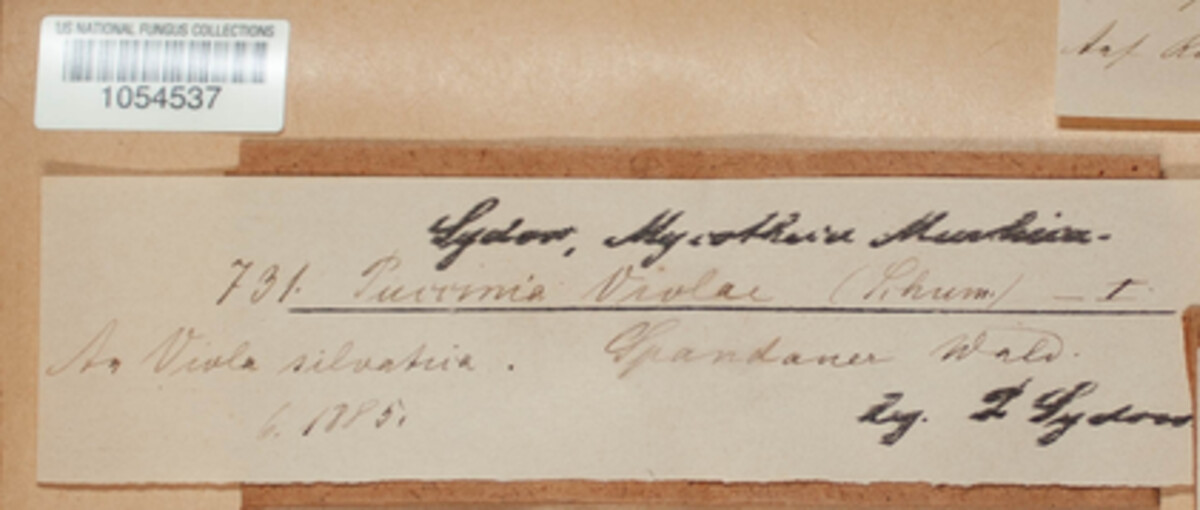 US NATIONAL FUNGUS COLLECTIONS
1054537
Auf
Sydow, Mycotheca Marchica.
731. Puccinia Violae (Schum.) — I.
An Viola silvatica. Spandauer Wald.
6. 1885.
Leg. P. Sydow